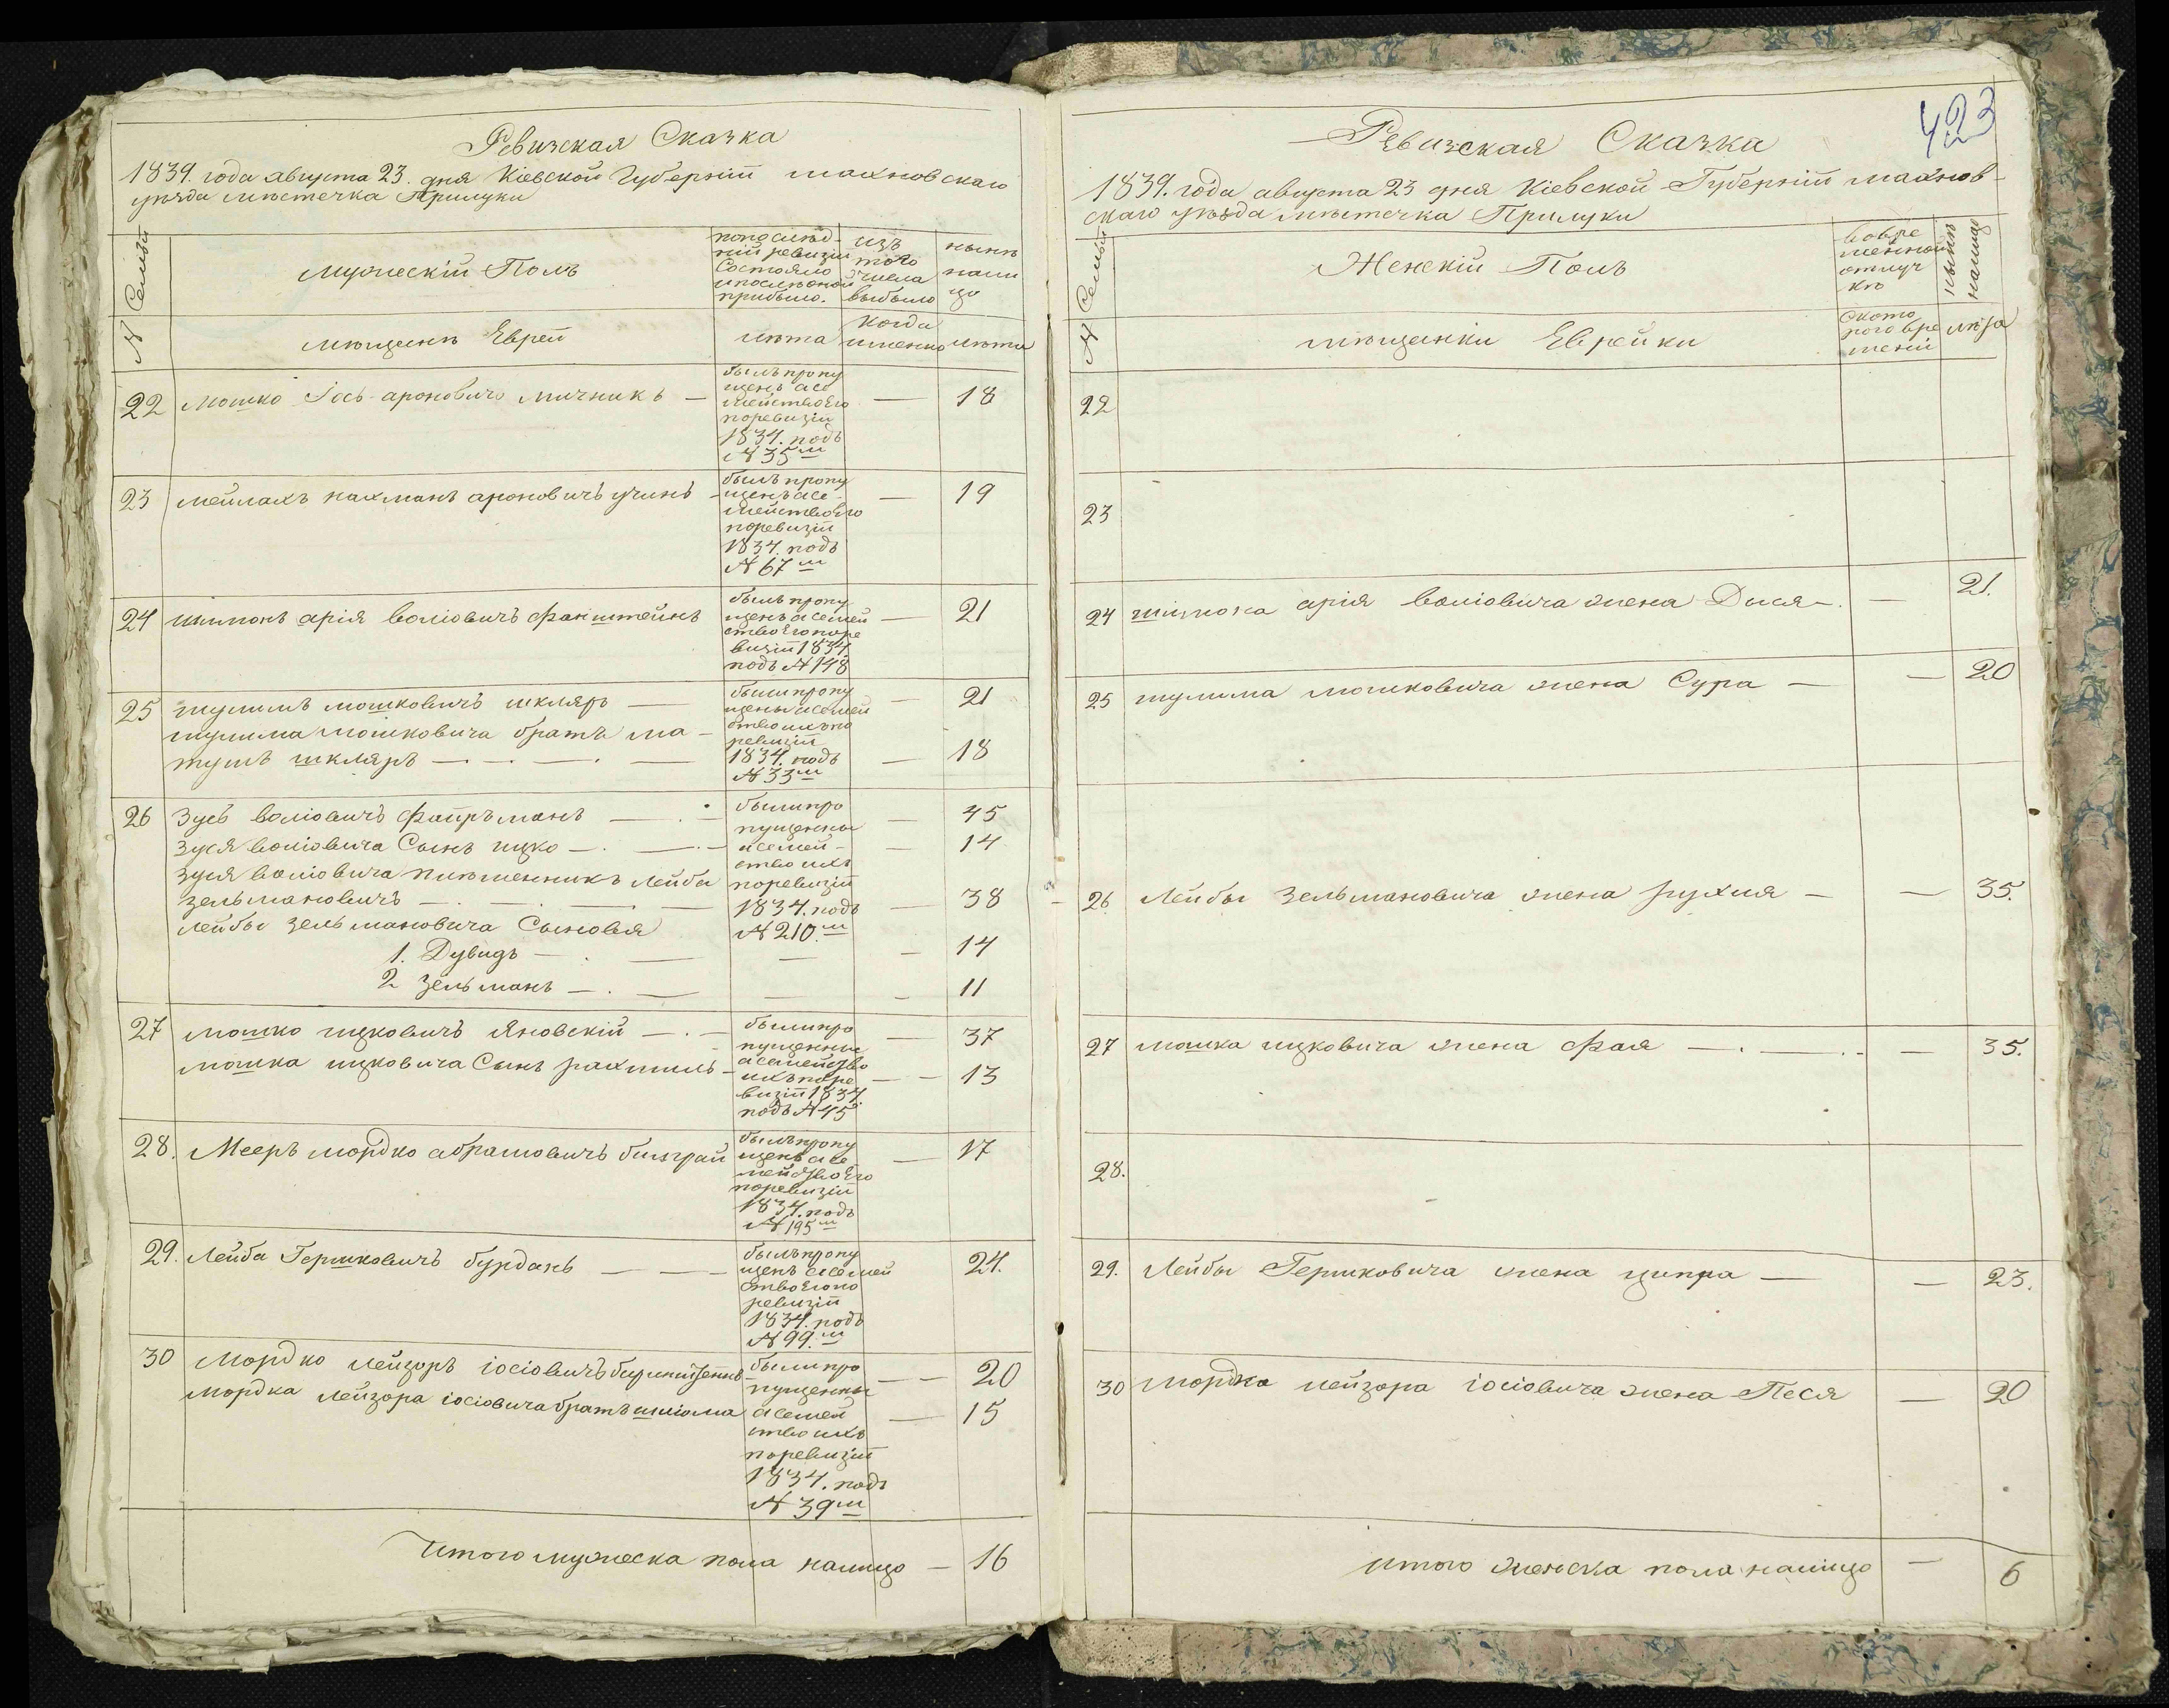 Ревизская Сказка
1839. года августа 23. дня Кіевской Губерніи махновскаго
уѣзда мѣстечка Прилуки
№ Семьи
Мужескій Полъ
по послѣд-
ній ревизіи
Состояло
и послѣ оной
прибыло.
изъ
того
числа
выбыло
нынѣ
нали
цо
мѣщанѣ Евреи
лѣта
когда
именно
лѣта
22 Мошко Іось ароновичъ мичникъ —
былъ пропу
щенъ а се
мейство Его
по ревизіи
1834. подъ
№ 35м
— 18
23 мейлахъ нахманъ ароновичъ учинъ —
былъ пропу
щенъ а се-
мейство Его
по ревизіи
1834. подъ
№ 67м
— 19
24 шимонъ арія воліовичъ фанштейнъ
былъ пропу
щенъ а семей
ство Его по ре
визіи 1834
подъ № 148
— 21
25 шулимъ мошковичъ шкляръ —
шулима мошковича братъ ма-
тусъ шкляръ — . — . —
были пропу
щены а семей
ство ихъ по
ревизіи
1834. подъ
№ 33м
— 21
— 18
26 Зусь воліовичъ фаиръманъ — . —
зуся воліовича Сынъ ицко — . — . —
зуся воліовича племенникъ Лейба
зельмановичъ — . — . —
лейбы зельмановича Сыновья
1. Дувидъ — . —
2 Зельманъ — . —
были про
пущенны
а семей-
ство ихъ
по ревизіи
1834. подъ
№ 210.м
— 45
— 14
— 38
— 14
— 11
27 мошко ицковичъ Яновскій — . —
мошка ицковича Сынъ рахмиль —
были про
пущенны
а семейство
ихъ по ре
визіи 1834.
подъ № 45
— 37
— 13
28. Мееръ мордко абрамовичъ
былъ пропу
щенъ а се
мейство Его
по ревизіи
1834. подъ
№ 195м
— 17
29. Лейба Гершковичъ бурданъ — —
былъ пропу
щенъ а семей
ство Его по
ревизіи
1834. подъ
№ 99.м
24.
30 Мордко лейзоръ іосіовичъ
мордка лейзора іосіовича братъ шліома
были про
пущенны
а семей
ство ихъ
по ревизіи
1834. подъ
№ 39м
— 20
— 15
Итого мужеска пола налицо — 16
423
Ревизская Сказка
1839. года августа 23 дня Кіевской Губерніи махнов-
скаго уѣзда мѣстечка Прилуки
№ Семьи
Женскій Полъ
во вре
менной
отлуч
кѣ
нынѣ
налицо
мѣщанки Еврейки
с кото
рого вре
мени
лѣта
22
23
24 шимона арія воліовича жена Дися — . — 21.
25 шулима мошковича жена Сура — — 20
26 Лейбы Зельмановича жена рухля — — 35.
27 мошка ицковича жена Фая — . — . - — 35.
28.
29. Лейбы Гершковича жена ципра — — 23.
30 Мордка лейзора іосіовича жена Песя — 20
итого женска пола налицо — 6